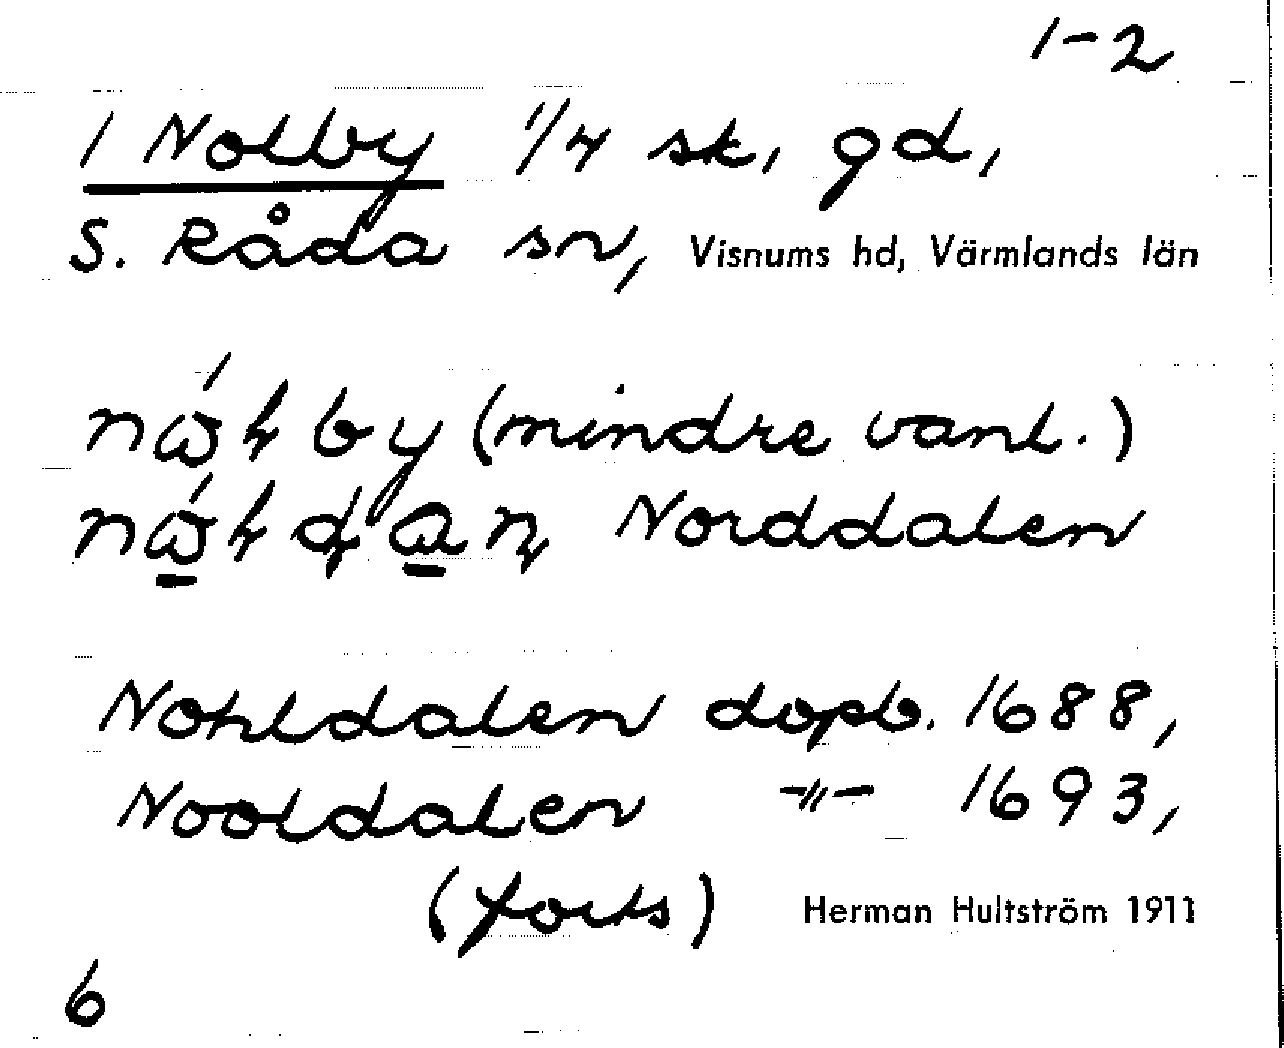 1-2
1 Nolby 1/4 sk, gd,
S. Råda sn, Visnums hd, Värmlands län
(mindre vanl.)
Norddalen
Nohldalen dopb. 1688,
Nooldalen -"- 1693,
(forts) Herman Hultström 1911
6